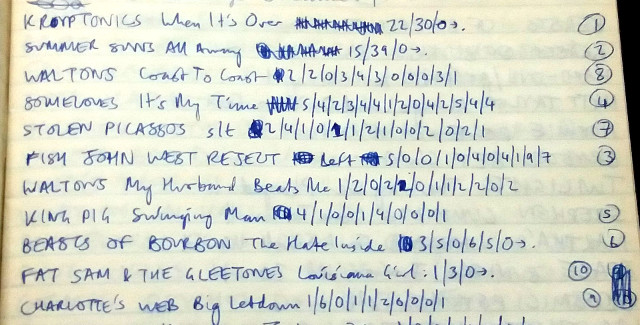 KRYPTONICS When It's Over 22/30/0→. 1
SUMMER SUNS All Away 15/39/0→. 2
WALTONS Coast To Coast 2/2/0/3/4/3/0/0/0/3/1 8
SOMELOVES It's My Time 5/4/2/3/4/4/1/2/0/4/2/5/4/4 4
STOLEN PICASSOS s/t 2/4/1/0/1/1/2/1/0/0/2/0/2/1 7
FISH JOHN WEST REJECT Left 5/0/0/1/0/4/0/4/1/9/7 3
WALTONS My Husband Beats Me 1/2/0/2/2/0/1/1/2/2/0/2
KING PIG Swinging Man 4/1/0/0/1/4/0/0/0/1 5
BEASTS OF BOURBON The Hate Inside 3/5/0/6/5/0→. 6
FAT SAM & THE GLEETONES Louisiana Girl: 1/3/0→. 10
CHARLOTTE'S WEB Big Letdown 1/6/0/1/1/2/0/0/0/1 9